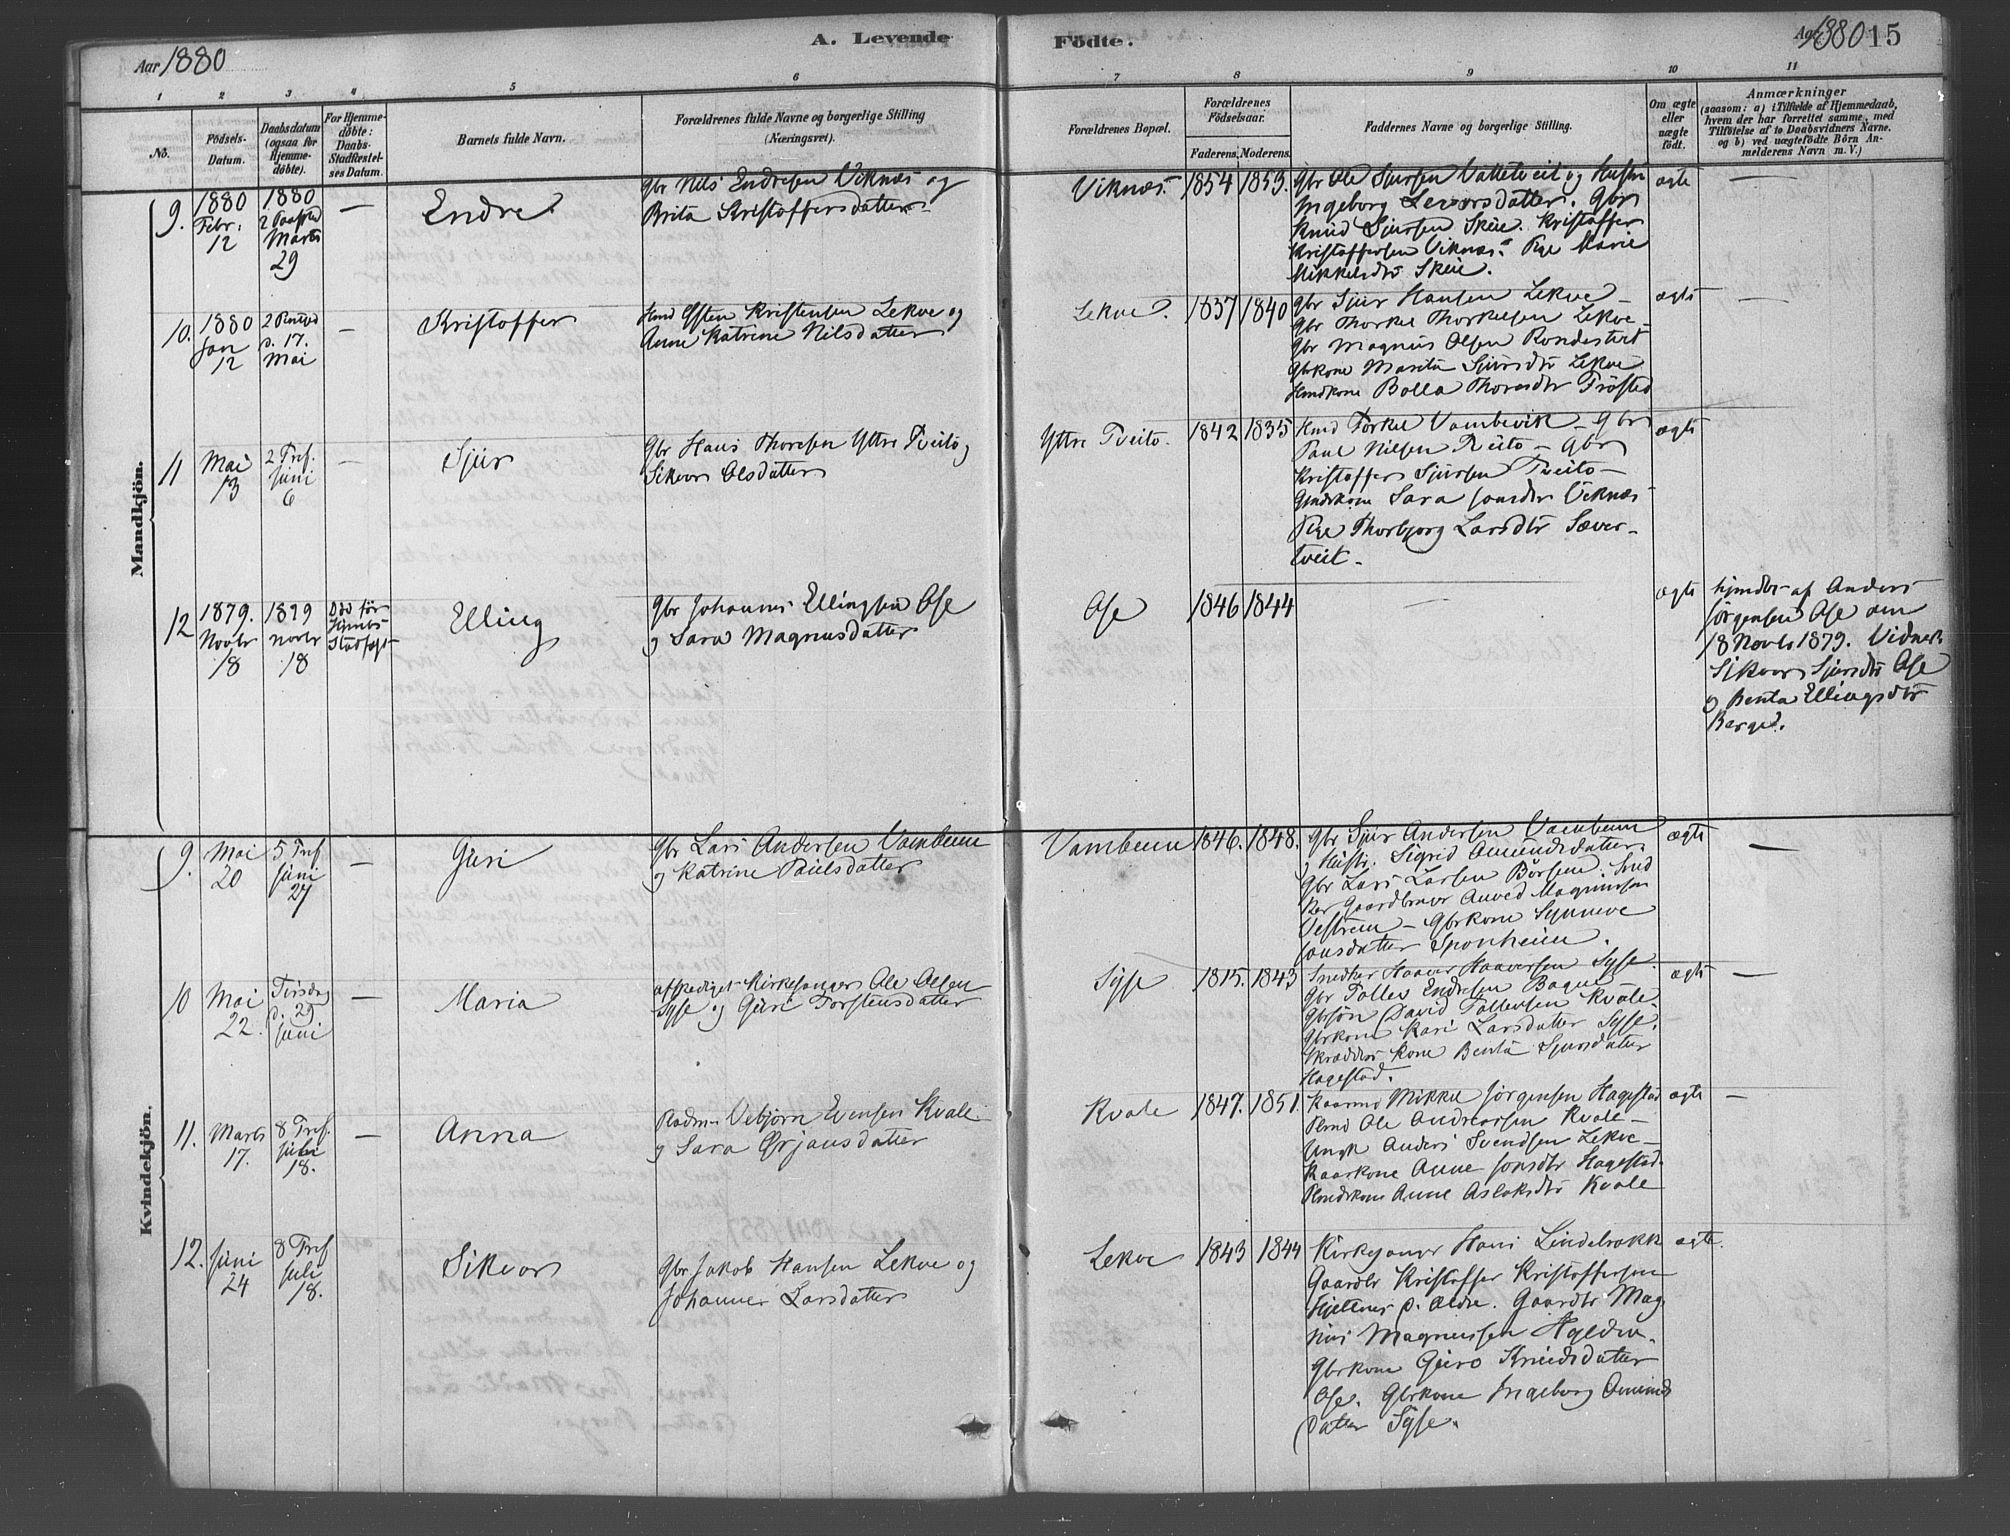 Aar 1880
A. Levende
Födte.
Aar 1880 15
1 2 3 4 5 6 7 8 9 10 11
No.
Födsels-
Datum.
Daabsdatum
(ogsaa for
Hjemme-
döbte).
For Hjemme-
döbte:
Daabs-
Stadfæstel-
ses Datum.
Barnets fulde Navn.
Forældrenes fulde Navne og borgerlige Stilling
(Næringsvei).
Forældrenes Bopæl.
Forældrenes
Födselsaar.
Faderens. Moderens.
Faddernes Navne og borgerlige Stilling.
Om ægte
eller
uægte
födt.
Anmærkninger
(saasom: a) i Tilfælde af Hjemmedaab,
hvem der har forrettet samme, med
Tilföielse af to Daabsvidners Navne.
og b) ved uægtefödte Börn An-
melderens Navn m. V.)
Mandkjön.
9.
1880
Febr.
12
1880
Marts
29
—
Endre
Gbr Nils Endresen Viknæs og
Brita Kristoffersdatter
Viknæs
1854
1853.
Gbr Ole Sjursen Vatletveit og Hustru
Ingeborg Leversdatter. Gbr
Knud Sjursen Skeie. Kristoffer
Kristoffersen Viknæs. Pge Marie
Mikkelsdtr Skeie.
ægte
—
10.
1880
Jan
12
2 Pintsd
d. 17.
Mai
—
Kristoffer
Hmd Østen Kristensen Lekve og
Anne Katrine Nilsdatter
Lekve.
1837
1840
Gbr Sjur Hansen Lekve –
Gbr Thorkel Thorkelsen Lekve –
Gbr Magnus Olsen Rondestveit
Gbrkone Marita Sjursdtr Lekve
Hmdkone Bolla Thoresdtr Tröstad
ægte
—
11
Mai
13
2 Tref.
Juni
6
—
Sjur
Gbr Hans Thoresen Yttre Tveito og
Sikvor Olsdatter
Yttre Tveito.
1842
1835
Hmd Torkel Vambevik – Gbr
Paul Nilsen Tveito – Gbr
Kristoffer Sjursen Tveito –
Gmdskone Sara Jonsdtr Viknæs
Pge Thorbjorg Larsdtr Sæver-
tveit.
ægte
12
1879.
Novbr
18
1879
Novbr
18
Död för
Stadfæst
Elling
Gbr Johannes Ellingsen Ose
og Sara Magnusdatter
Ose
1846
1844
—
ægte
Hjemdbt af Anders
Jörgensen Ose am
18 Novbr 1879. Vidner:
Sikvor Sjursdtr Ose
og Benta Ellingsdtr
Berge.
Kvindekjön.
9.
Mai
20
5 Tref
Juni
27
—
Guri
Gbr Lars Andersen Vambeim
og Katrine Paulsdatter
Vambeim
1846.
1848.
Gbr Sjur Andersen Vambeim
og Hustr. Sigrid Amundsdatter.
Gbr Lars Larsen Börsem. Sned
ker Gaardbruger Anved Magnussen
Vestrem – Gbrkone Synneve
Jonsdatter Sponheim.
ægte
—
10
Mai
22.
Tirsdag
d. 29
Juni
—
Maria
afskediget Kirkesanger Ole Olsen
Syse og Guri Torstensdatter
Syse
1815.
1843
Snedker Haaver Haaversen Syse.
Gbr Tolles Endresen Bagne
Gbrsön David Tollevsen Kvale.
Gbrkone Kari Larsdatter Syse.
Skrædders kone Benta Sjursdatter
Hagestad.
ægte
—
11.
Marts
17.
8 Tref.
Juli
18.
—
Anna
Vebjörn Evensen Kvale
og Sara Örjansdatter
Kvale
1847.
1851.
Kaarmd Mikkel Jörgensen Hagestad
Plmd Ole Andreassen Kvale –
Ungk Anders Svendsen Lekve –
Kaarkone Anne Jonsdtr Hagestad.
Plmdskone Anne Aslaksdtr Kvale
ægte
—
12.
Juni
24
8 Tref
Juli
18.
Sikvor
Gbr Jakob Hansen Lekve og
Johanne Larsdatter
Lekve
1843
1844
Kirkesanger Hans Lindebrække
Gaardbr Kristoffer Kristoffersen
Hjeltnes d. ældre. Gaardbr Mag
nus Magnussen Hylden.
Gbrkone Guro Knudsdatter
Ose. Gbrkone Ingeborg Amunds
datter Syse.
ægte.